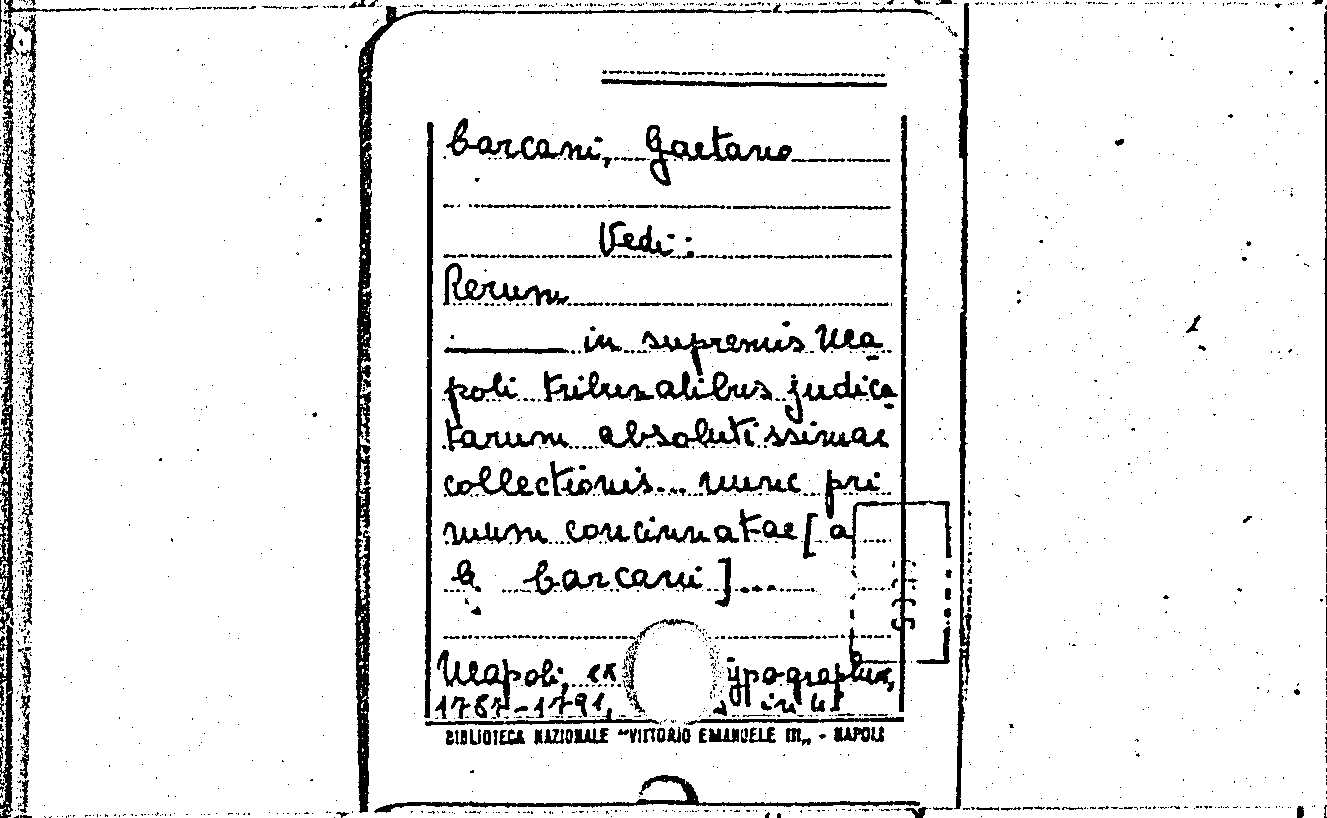 Barcani, Gaetano
Vedi:
Rerum
in supremis Nea
poli tribunalibus judica
tarum absolutissimae
collectionis... nunc pri
mum concinnatae [a
G. Barcani]...
Neapoli, ex ypographia,
1787-1791, in 4°
BIBLIOTECA NAZIONALE "VITTORIO EMANUELE III„ - NAPOLI